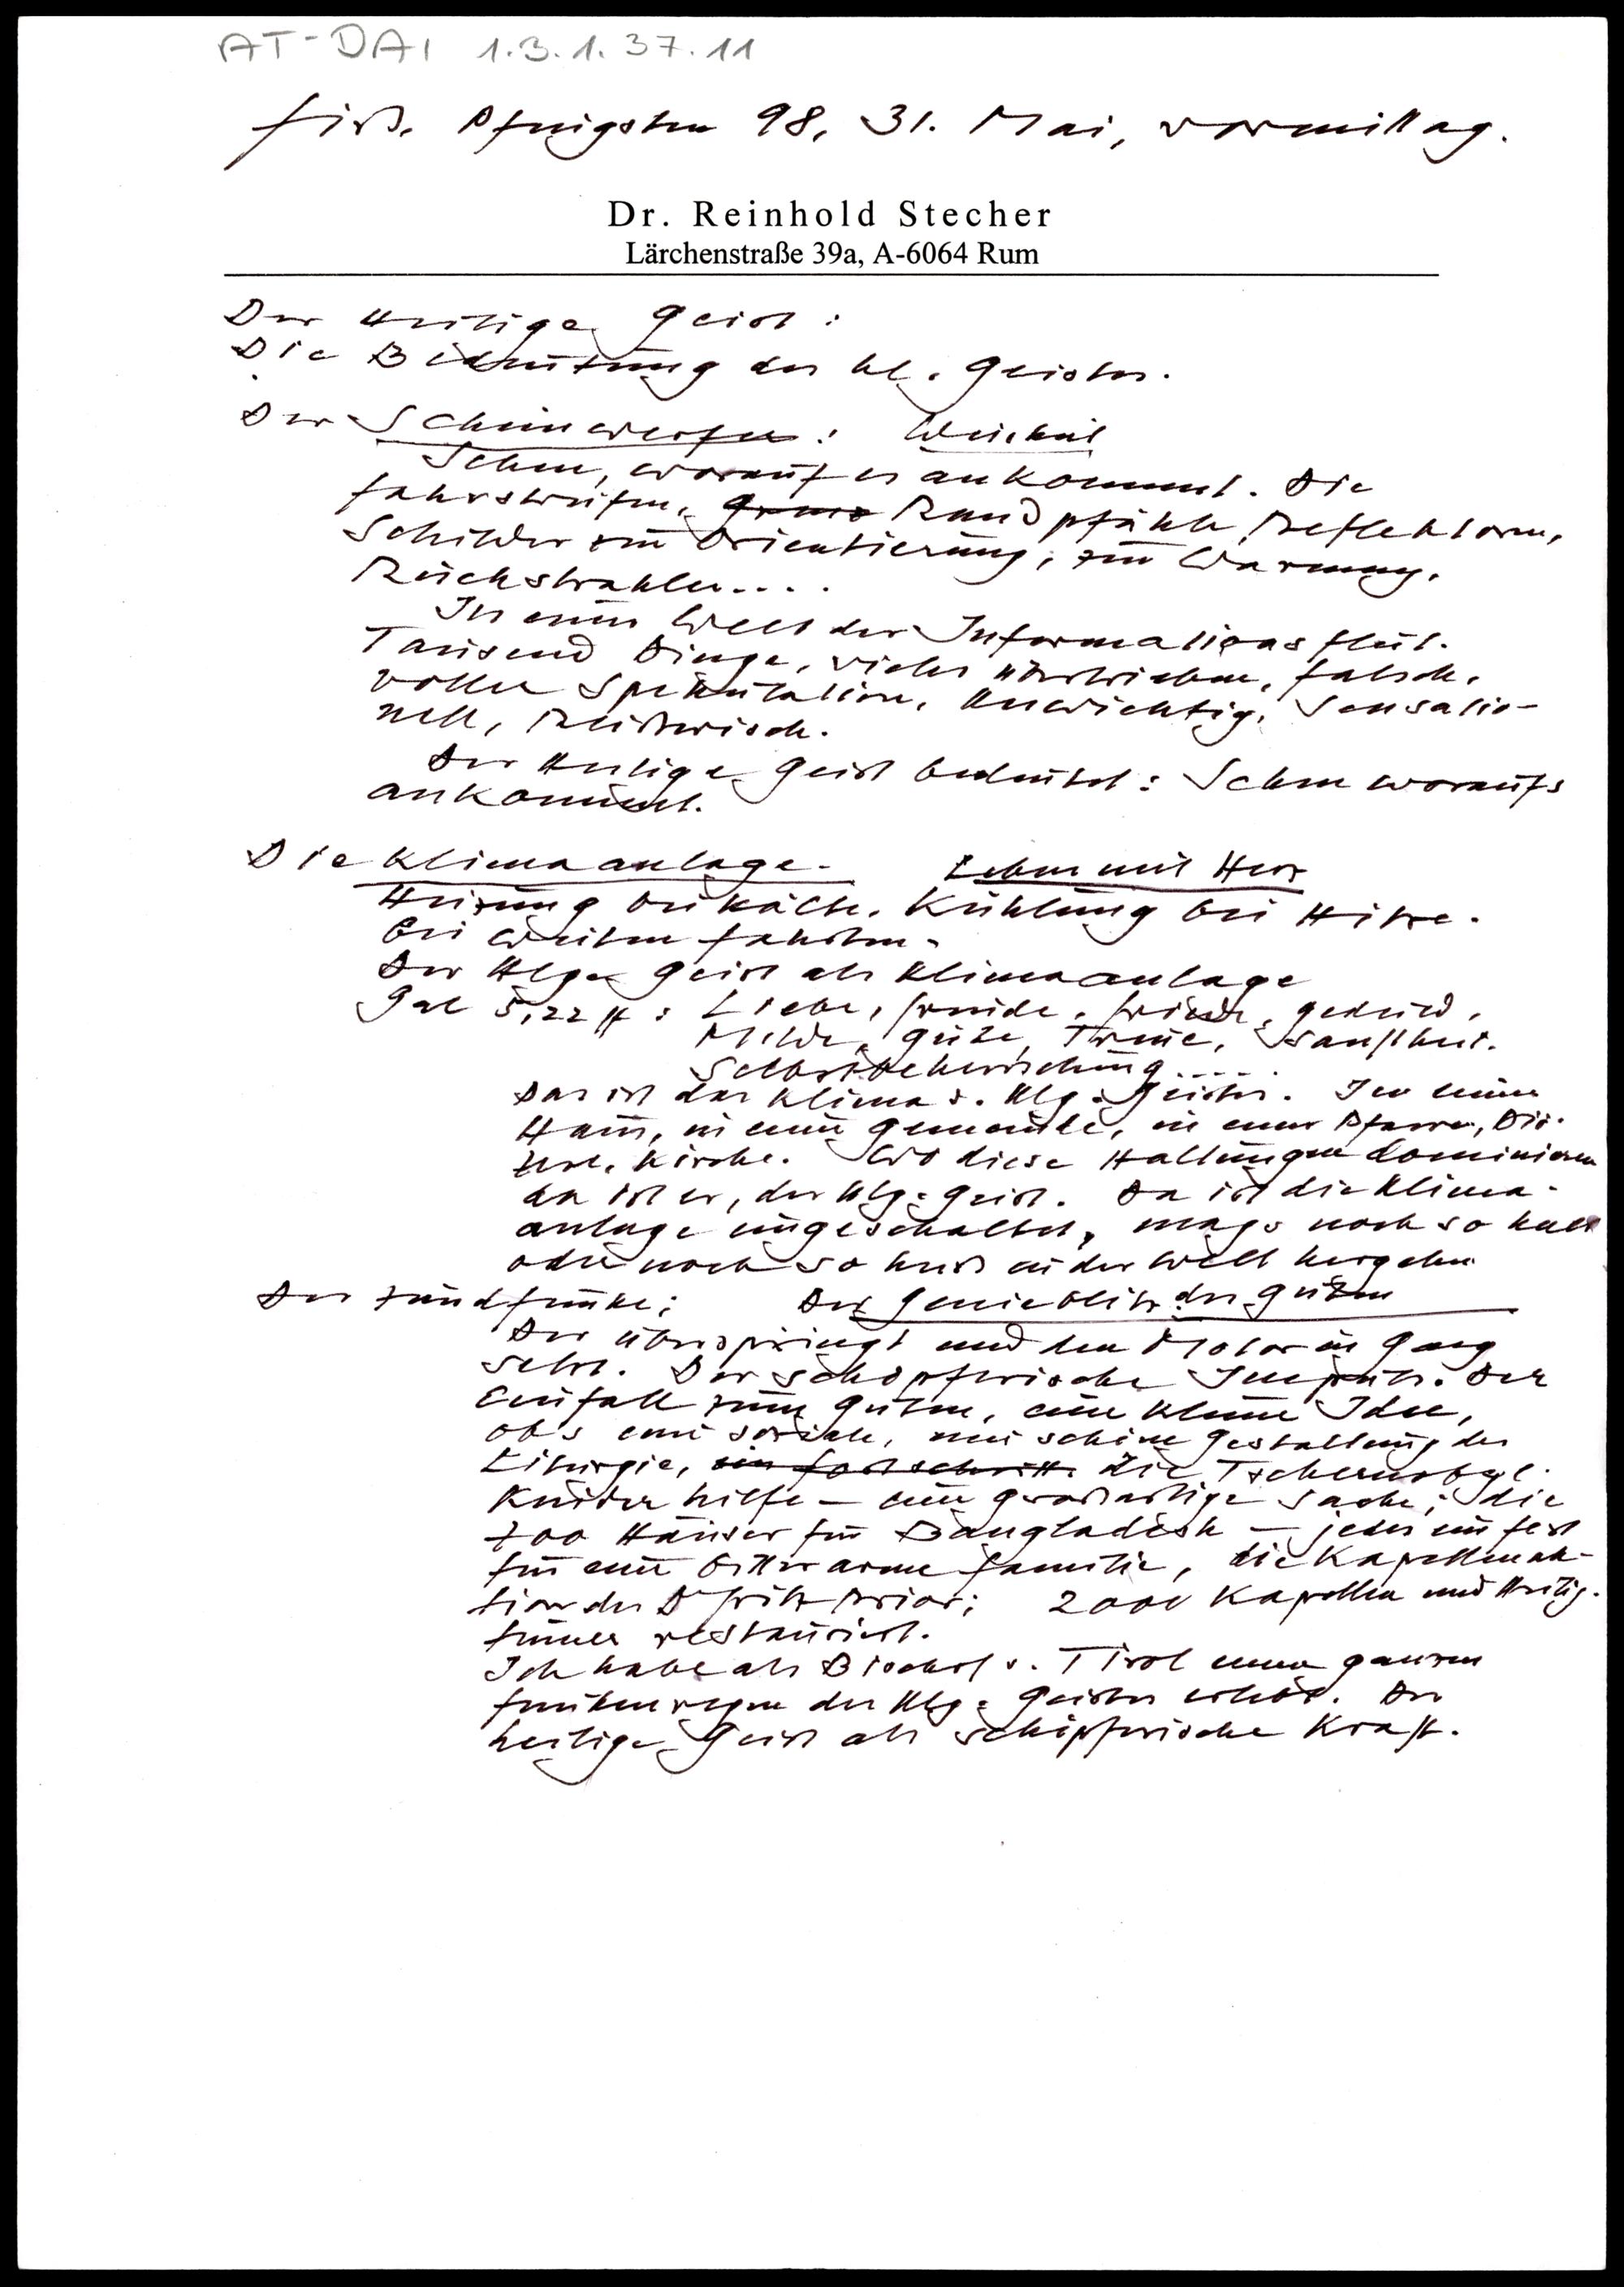 AT-DAI 1.3.1.37.11
Fiß, Pfingsten 98, 31. Mai, vormittag.
Dr. Reinhold Stecher
Lärchenstraße 39a, A-6064 Rum
Der Heilige Geist:
Die Bedeutung des hl. Geistes.
Der Scheinwerfer: Weisheit
Sehen, worauf es ankommt. Die
Fahrstreifen, Randpfähle, Reflektoren,
Schilder zur Orientierung, zur Warnung.
Rückstrahler....
In einer Welt der Informationsflut.
Tausend Dinge, vieles übertrieben, falsch,
voller Spekulation, unwichtig, sensatio-
nell, reißerisch.
Der Heilige Geist bedeutet: Sehen woraufs
ankommt.
Die Klimaanlage. Leben mit Herz
Heizung bei Kälte. Kühlung bei Hitze.
Bei weiten Fahrten.
Der Hlge Geist als Klimaanlage
Gal 5,22 ff: Liebe, Freude, Friede, Geduld,
Milde, Güte, Treue, Sanftheit.
Selbstbeherrschung.....
Das ist das Klima d. Hlg. Geistes. In einem
Haus, in einer Gemeinde, in einer Pfarre, Diö-
zese, Kirche. Wo diese Haltungen dominieren
da ist er, der Hlge Geist. Da ist die Klima-
anlage eingeschaltet, mags noch so kalt
oder noch so heiß in der Welt hergehen
Der Zündfunke: Der Genieblitz des Guten
Der überspringt und den Motor in Gang
setzt. Der schöpferische Impuls. Der
Einfall zum Guten, eine kleine Idee,
obs eine soziale, eine schöne Gestaltung der
Liturgie, ein Fortschritt die Tschernobyl-
Kinderhilfe – eine großartige Sache; die
700 Häuser für Bangladesh – jedes ein Fest
für eine bitterarme Familie, die Kapellenak-
tion des Dr Fritz Prior; 2000 Kapellen und Heilig-
tümer restauriert.
Ich habe als Bischof v. Tirol einen ganzen
Funkenregen des Hlg. Geistes erlebt. Der
heilige Geist als schöpferische Kraft.